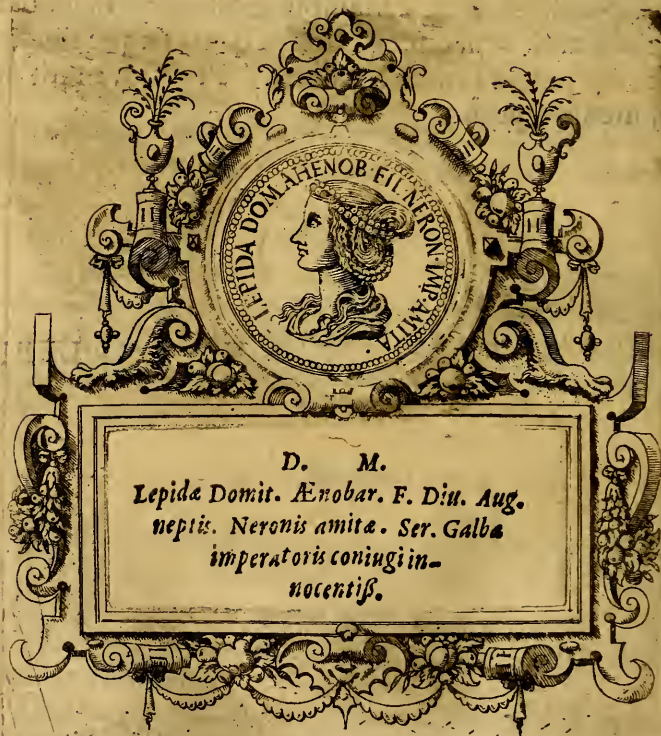 LEPIDA DOM AHENOB·FIL·NERON·IMP·AMITA
D. M.
Lepidæ Domit. Ænobar. F. Diu. Aug.
neptis. Neronis amitæ. Ser. Galbæ
imperatoris coniugi in-
nocentiß.